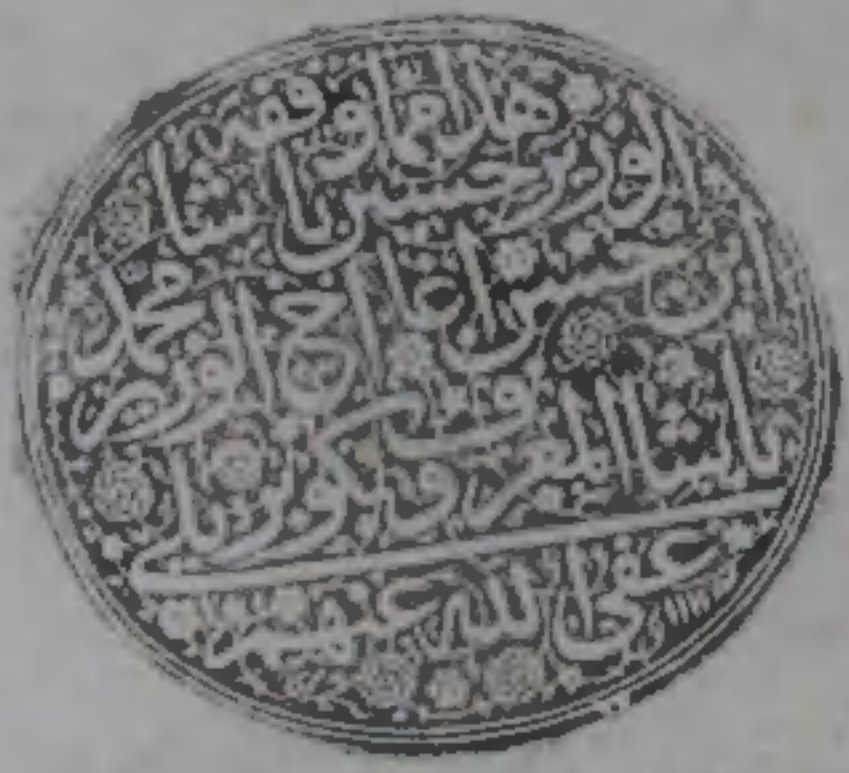 هذا مما وقفه
الوزير حسين پاشا
ابن حسن اغا اخ الوزير محمد
پاشا المعروف بكوپريلى
عفى الله عنهم